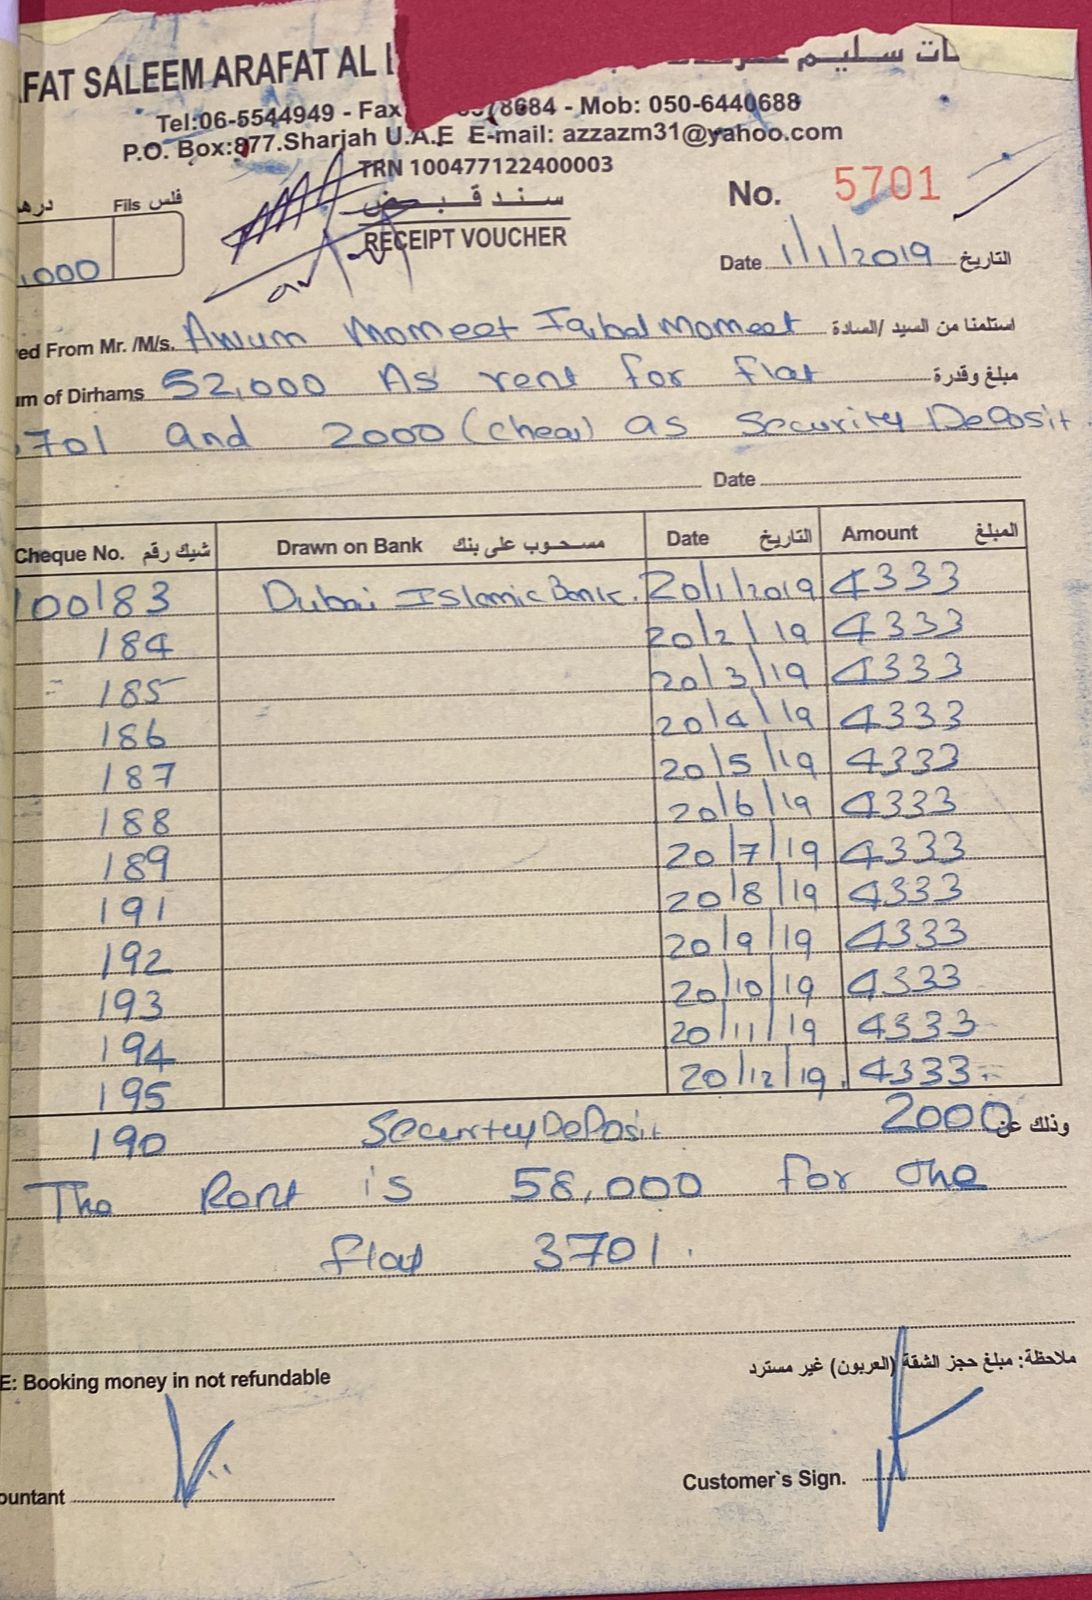 FAT SALEEM ARAFAT AL
ات سليم
Tel:06-5544949 - Fax 8684 - Mob: 050-6440688
P.O. Box:877.Sharjah U.A.E E-mail: azzazm31@yahoo.com
TRN 100477122400003
سند قبض
RECEIPT VOUCHER
No. 5701
Fils فلس
,000
Date 1/1/2019 التاريخ
ed From Mr. /M/s. Awum Momeet Iqbal Momeet استلمنا من السيد /السادة
um of Dirhams 52,000 As rent for flat مبلغ وقدرة
701 and 2000 (cheq) as Security Deposit.
Date
Cheque No. شيك رقم Drawn on Bank مسحوب على بنك Date التاريخ Amount المبلغ
100183 Dubai Islamic Bank. 20/1/2019 4333
184 20/2/19 4333
185 20/3/19 4333
186 20/4/19 4333
187 20/5/19 4333
188 20/6/19 4333
189 20/7/19 4333
191 20/8/19 4333
192 20/9/19 4333
193 20/10/19 4333
194 20/11/19 4333
195 20/12/19 4333
190 Securtey Deposit 2000 وذلك عن
The Rent is 58,000 for the
flat 3701.
E: Booking money in not refundable
ملاحظة: مبلغ حجز الشقة (العربون) غير مسترد
ountant
Customer`s Sign.